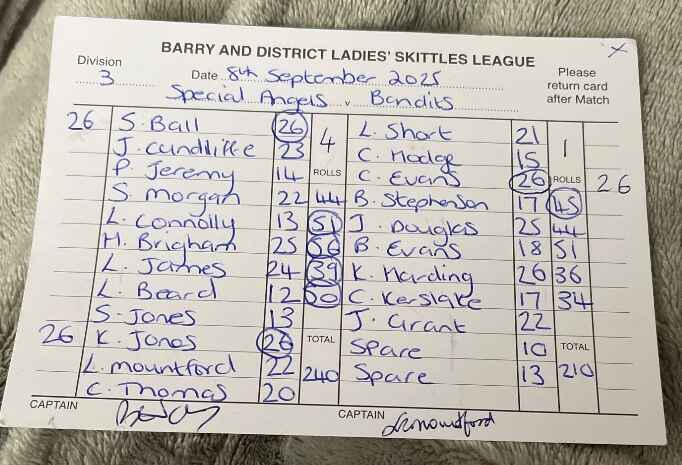 BARRY AND DISTRICT LADIES' SKITTLES LEAGUE
Division 3 Date 8th September 2025 Please return card after Match
Special Angels v Bandits
26 S. Ball 26 4 L. Short 21 1
J. Cundliffe 23 C. Hodge 15
P. Jeremy 14 ROLLS C. Evans 26 ROLLS 26
S. Morgan 22 44 B. Stephenson 17 45
L. Connolly 13 51 J. Douglas 25 44
H. Brigham 25 56 B. Evans 18 51
L. James 24 39 K. Harding 26 36
L. Beard 12 50 C. Kerslake 17 34
S. Jones 13 J. Grant 22
26 K. Jones 26 TOTAL Spare 10 TOTAL
L. Mountford 22 240 Spare 13 210
C. Thomas 20
CAPTAIN CAPTAIN LMountford